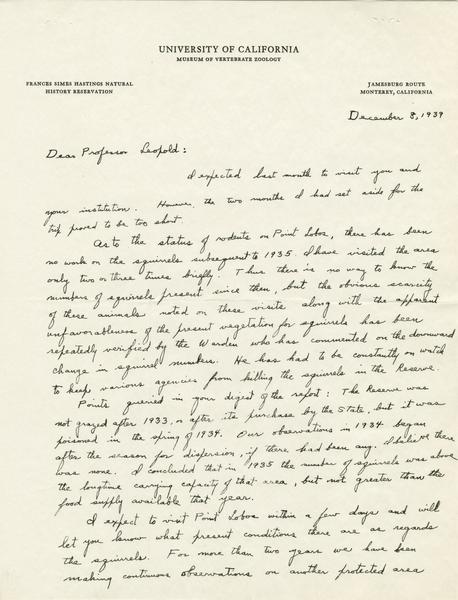 UNIVERSITY OF CALIFORNIA
MUSEUM OF VERTEBRATE ZOOLOGY
FRANCES SIMES HASTINGS NATURAL
HISTORY RESERVATION
JAMESBURG ROUTE
MONTEREY, CALIFORNIA
December 8, 1939
Dear Professor Leopold:
I expected last month to visit you and
your institution. However, the two months I had set aside for the
trip proved to be too short.
As to the status of rodents on Point Lobos, there has been
no work on the squirrels subsequent to 1935. I have visited the area
only two or three times briefly. Thus there is no way to know the
numbers of squirrels present since then, but the obvious scarcity
of these animals noted on these visits along with the apparent
unfavorableness of the present vegetation for squirrels has been
repeatedly verified by the Warden who has commented on the downward
change in squirrel numbers. He has had to be constantly on watch
to keep various agencies from killing the squirrels in the Reserve.
Points queried in your digest of the report: The Reserve was
not grazed after 1933, or after its purchase by the State, but it was
poisoned in the spring of 1934. Our observations in 1934 began
after the season for dispersion, if there had been any. I believe there
was none. I concluded that in 1935 the number of squirrels was above
the longtime carrying capacity of that area, but not greater than the
food supply available that year.
I expect to visit Point Lobos within a few days and will
let you know what present conditions there are as regards
the squirrels. For more than two years we have been
making continuous observations on another protected area